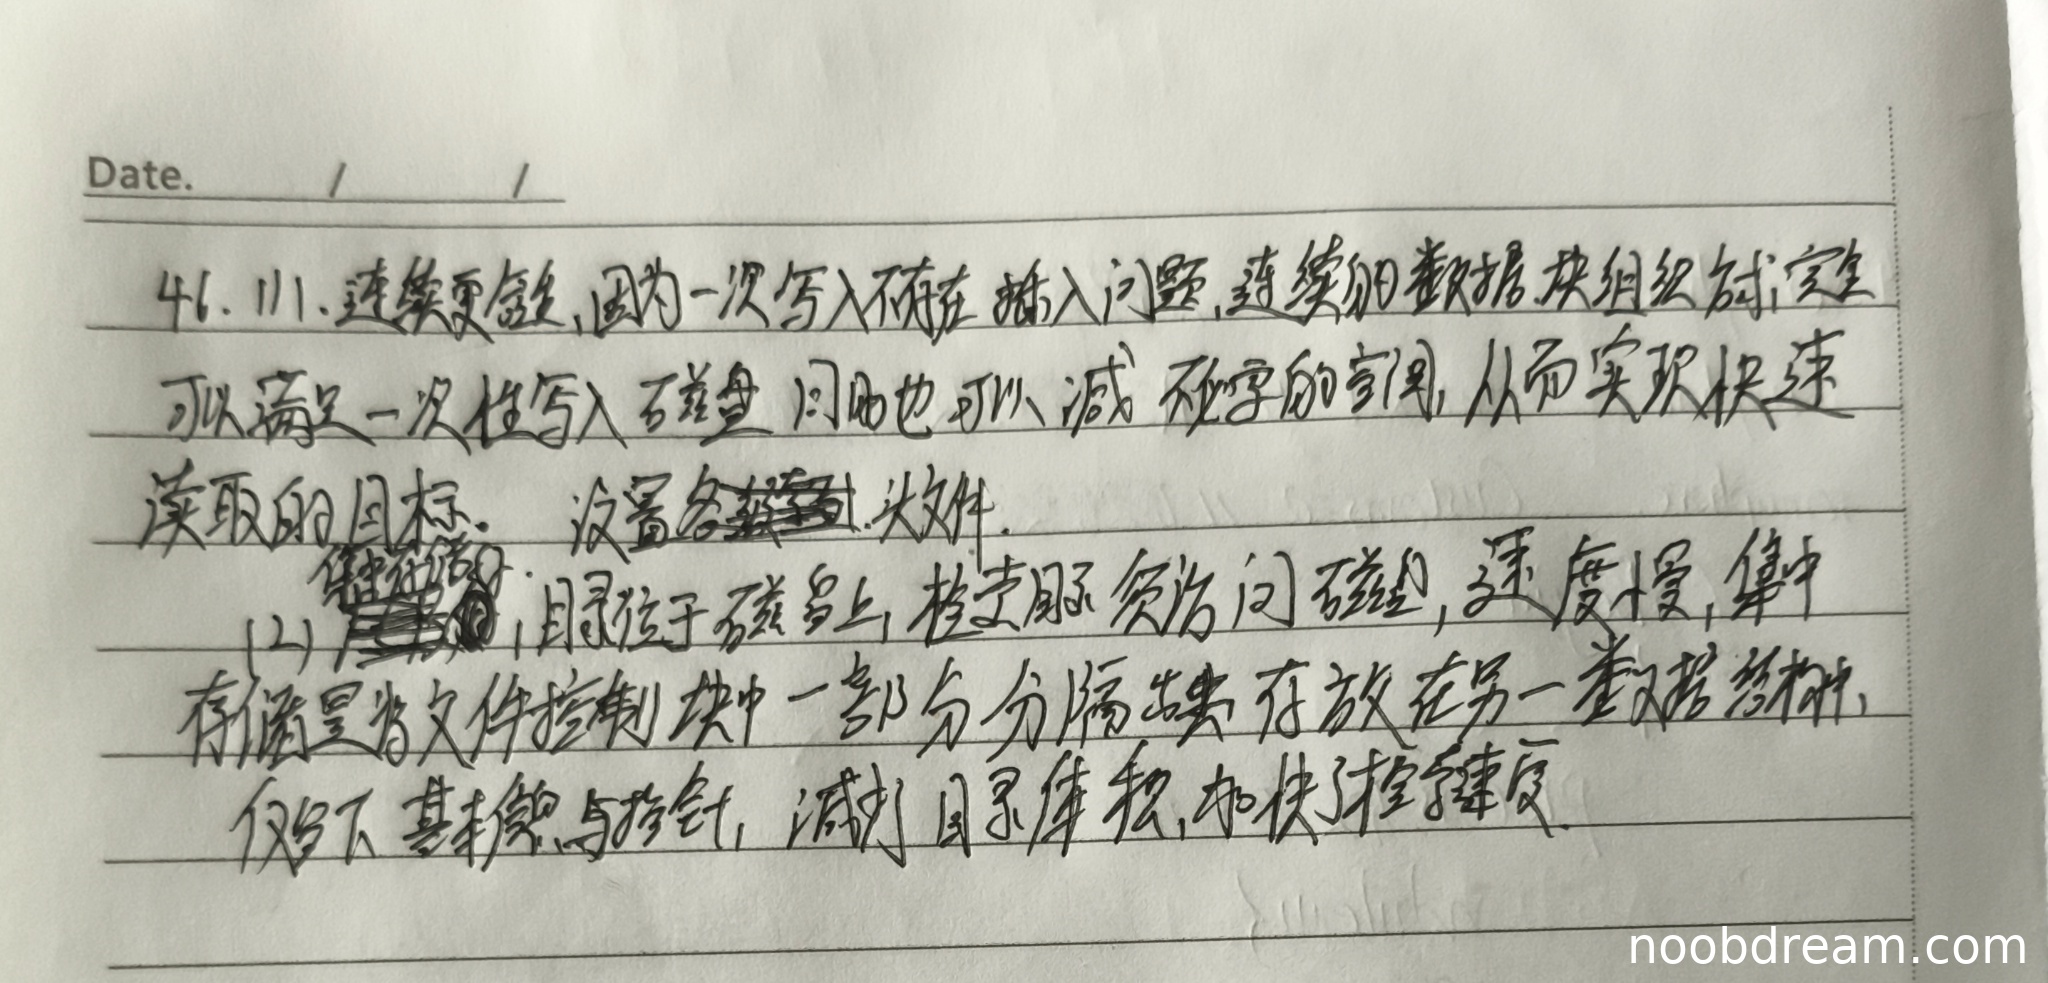 Date. / /
46.(1).连续更合适,因为一次写入不存在插入问题,连续的数据块组织方式,完全
可以满足一次性写入磁盘同时也可以减不必要的空间,从而实现快速
读取的目标. 设置 头文件.
集中存储好.
(2) ,目录位于磁盘上,检索时须访问磁盘,速度慢,集中
存储是将文件控制块中一部分分隔出来存放在另一数据结构中,
仅留下基本信息与指针,减少目录体积,加快了检索速度.
noobdream.com